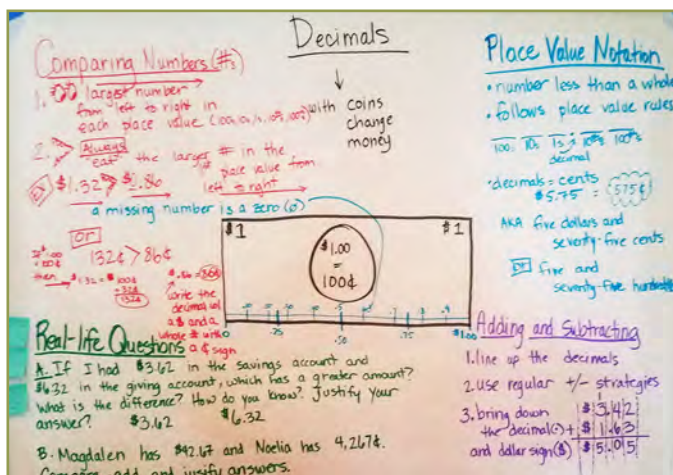 Decimals
with coins
change
money
Comparing Numbers (#s)
1. largest number
from left to right in
each place value
2. Always
eat the larger # in the
place value from
left to right
EX $1.32 > $.86
a missing number is a zero (0)
or
132¢ > 86¢
If $1.00
= 100¢
then
$1.32 = $ 100¢
+ 32¢
132¢
$.86 = 86¢
write the
decimal w/
a $ and a
whole # with
a ¢ sign
$1
$1
$1.00
=
100¢
0 .25 .50 .75 $1.00
Place Value Notation
• number less than a whole
• follows place value rules
100s 10s 1s . 10ths 100ths
decimal
• decimals = cents
$5.75 = 575¢
AKA five dollars and
seventy-five cents
or five and
seventy-five hundredths
Real-life Questions
A. If I had $3.62 in the savings account and
$6.32 in the giving account, which has a greater amount?
What is the difference? How do you know? Justify your
answer? $3.62 $6.32
B. Magdalen has $42.67 and Noelia has 4,267¢.
Compare, add, and jusify answers.
Adding and Subtracting
1. line up the decimals
2. use regular +/- strategies
3. bring down
the decimal (.)
and dollar sign ($)
$3.42
+ $1.63
$5.05